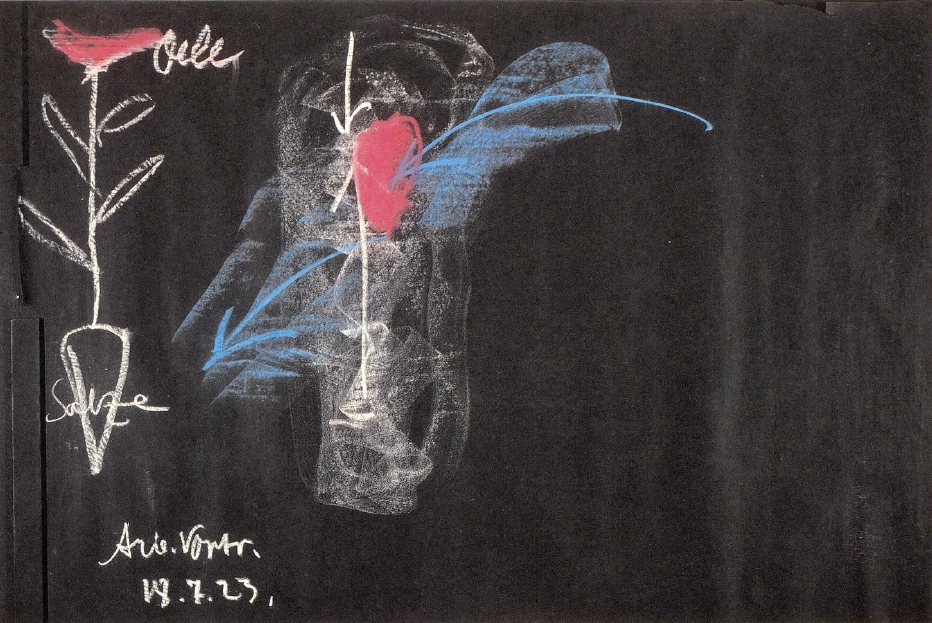 Oele
Salze
Arb. Vortr.
18.7.23.